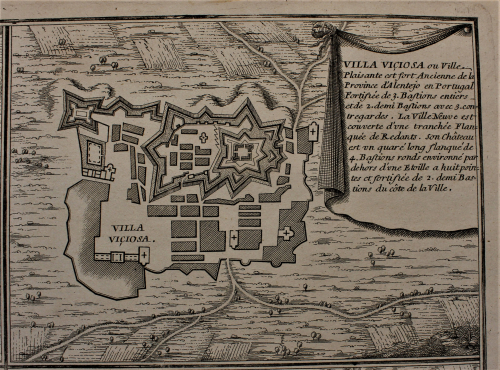 VILLA VIÇIOSA ou Ville
Plaisante est fort Ancienne de la
Province d'Alentejo en Portugal
Fortifiée de 3. Bastions entiers
et de 2. demi Bastions avec 3. con
tregardes. La Ville Neuve est
couverte d'vne tranchée Flan
quée de Redants. Son Château
est vn quaré long flanqué de
4. Bastions ronds environné par
dehors d'vne Etoille a huit poin
tes et fortifiée de 2. demi Bas
tions du côte de la Ville.
VILLA
VIÇIOSA.